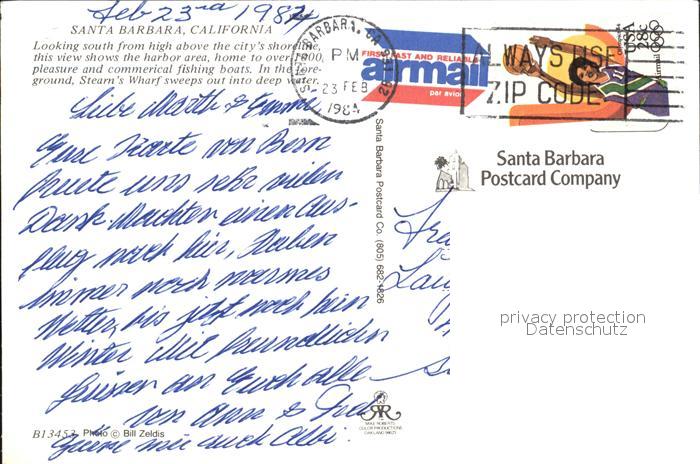 Feb 23rd 1984
SANTA BARBARA, CALIFORNIA
Looking south from high above the city's shoreline,
this view shows the harbor area, home to over 1000,
pleasure and commerical fishing boats. In the fore-
ground, Stearn's Wharf sweeps out into deep water.
SANTA BARBARA, CA
PM
23 FEB
1984
FIRST FAST AND RELIABLE
airmail
par avion
ALWAYS USE
ZIP CODE
USA
28c
Airmail
Liebe Martha & Emmi
Eure Karte von Bern
freute uns sehr vielen
Dank Machten einen Aus-
flug nach hier, Haben
immer noch warmes
Wetter, bis jetzt noch kein
Winter Mit freundlichen
Grüssen an Euch alle
von Ann &
Grüsse mir auch Albi
Santa Barbara Postcard Co. (805) 682-4826
Santa Barbara
Postcard Company
privacy protection
Datenschutz
MIKE ROBERTS
COLOR PRODUCTIONS
OAKLAND
B13453 Photo © Bill Zeldis